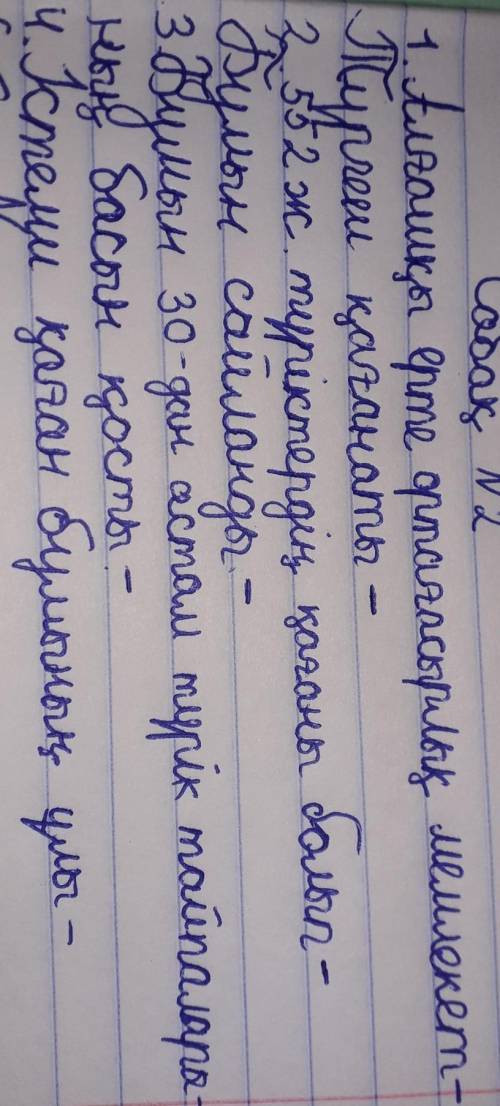 Сабақ №2
1. Алғашқы ерте ортағасырлық мемлекет-
Түргеш қағанаты -
2. 552 ж. түріктердің қағаны болып -
Бумын сайланды. -
3. Бумын 30-дан астам түрік тайпалары-
ның басын қосты. -
4. Істеми қаған бумының ұлы -